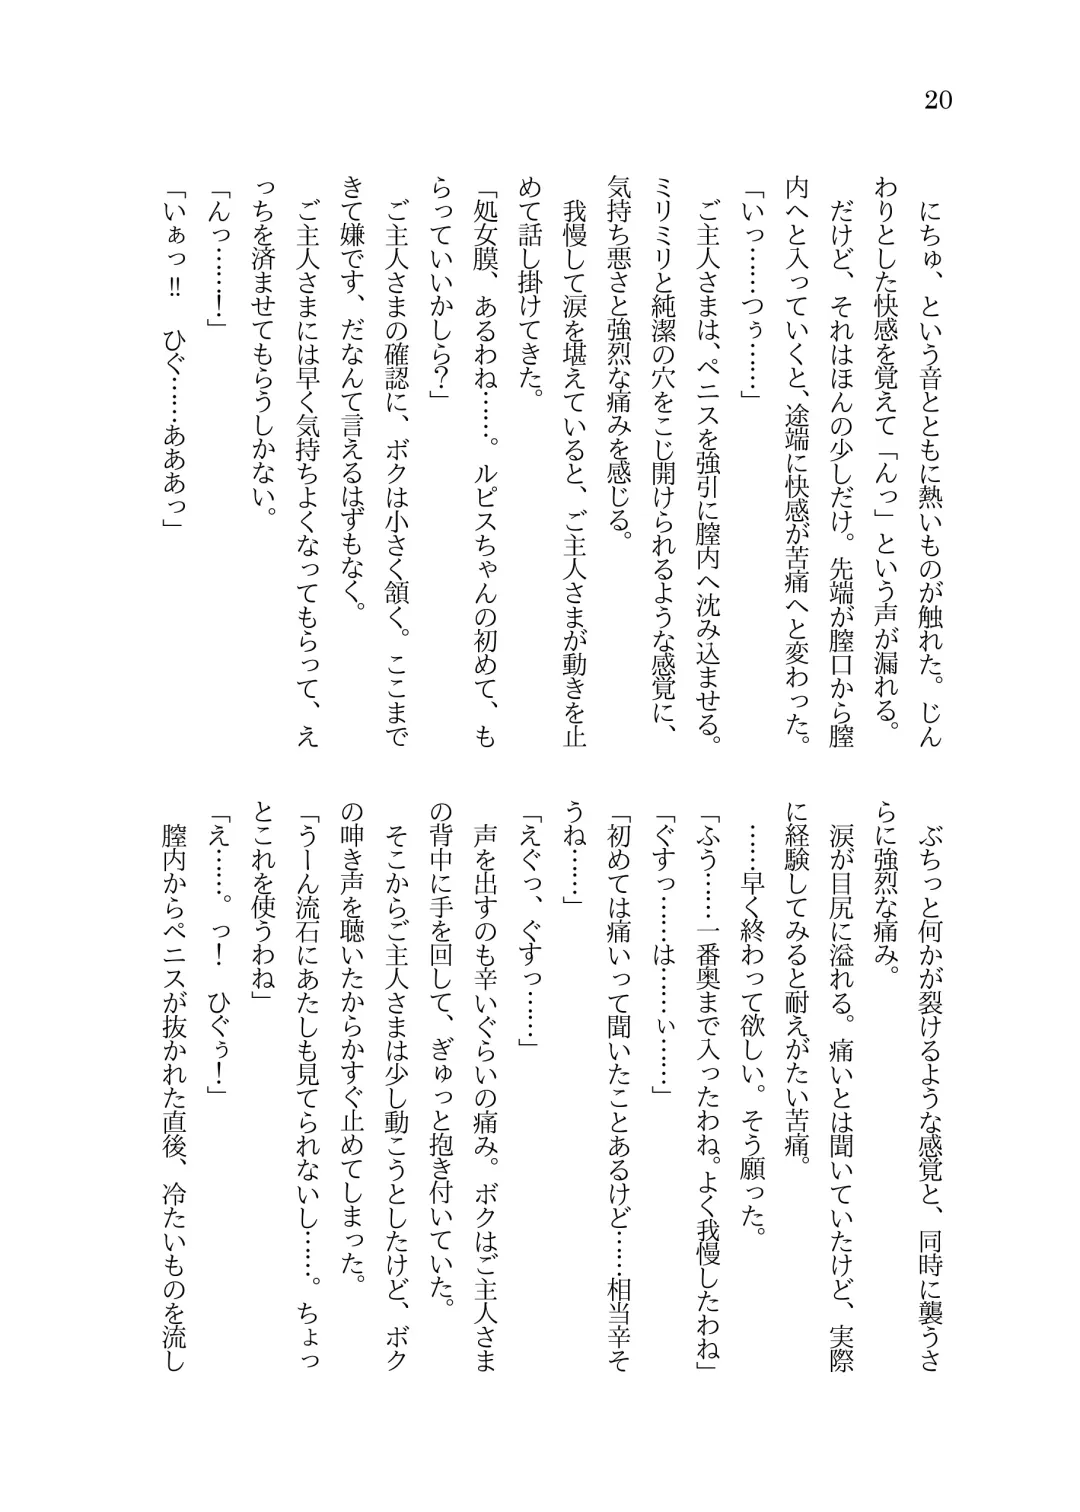 20
にちゅ、という音とともに熱いものが触れた。じん
わりとした快感を覚えて「んっ」という声が漏れる。
だけど、それはほんの少しだけ。先端が膣口から膣
内へと入っていくと、途端に快感が苦痛へと変わった。
「いっ……つぅ……」
ご主人さまは、ペニスを強引に膣内へ沈み込ませる。
ミリミリと純潔の穴をこじ開けられるような感覚に、
気持ち悪さと強烈な痛みを感じる。
我慢して涙を堪えていると、ご主人さまが動きを止
めて話し掛けてきた。
「処女膜、あるわね……。ルピスちゃんの初めて、も
らっていいかしら?」
ご主人さまの確認に、ボクは小さく頷く。ここまで
きて嫌です、だなんて言えるはずもなく。
ご主人さまには早く気持ちよくなってもらって、え
っちを済ませてもらうしかない。
「んっ……!」
「いぁっ!! ひぐ……あああっ」
ぶちっと何かが裂けるような感覚と、同時に襲うさ
らに強烈な痛み。
涙が目尻に溢れる。痛いとは聞いていたけど、実際
に経験してみると耐えがたい苦痛。
……早く終わって欲しい。そう願った。
「ふう……一番奥まで入ったわね。よく我慢したわね」
「ぐすっ……は……ぃ……」
「初めては痛いって聞いたことあるけど……相当辛そ
うね……」
「えぐっ、ぐすっ……」
声を出すのも辛いぐらいの痛み。ボクはご主人さま
の背中に手を回して、ぎゅっと抱き付いていた。
そこからご主人さまは少し動こうとしたけど、ボク
の呻き声を聴いたからかすぐ止めてしまった。
「うーん流石にあたしも見てられないし……。ちょっ
とこれを使うわね」
「え……。っ! ひぐぅ!」
膣内からペニスが抜かれた直後、冷たいものを流し